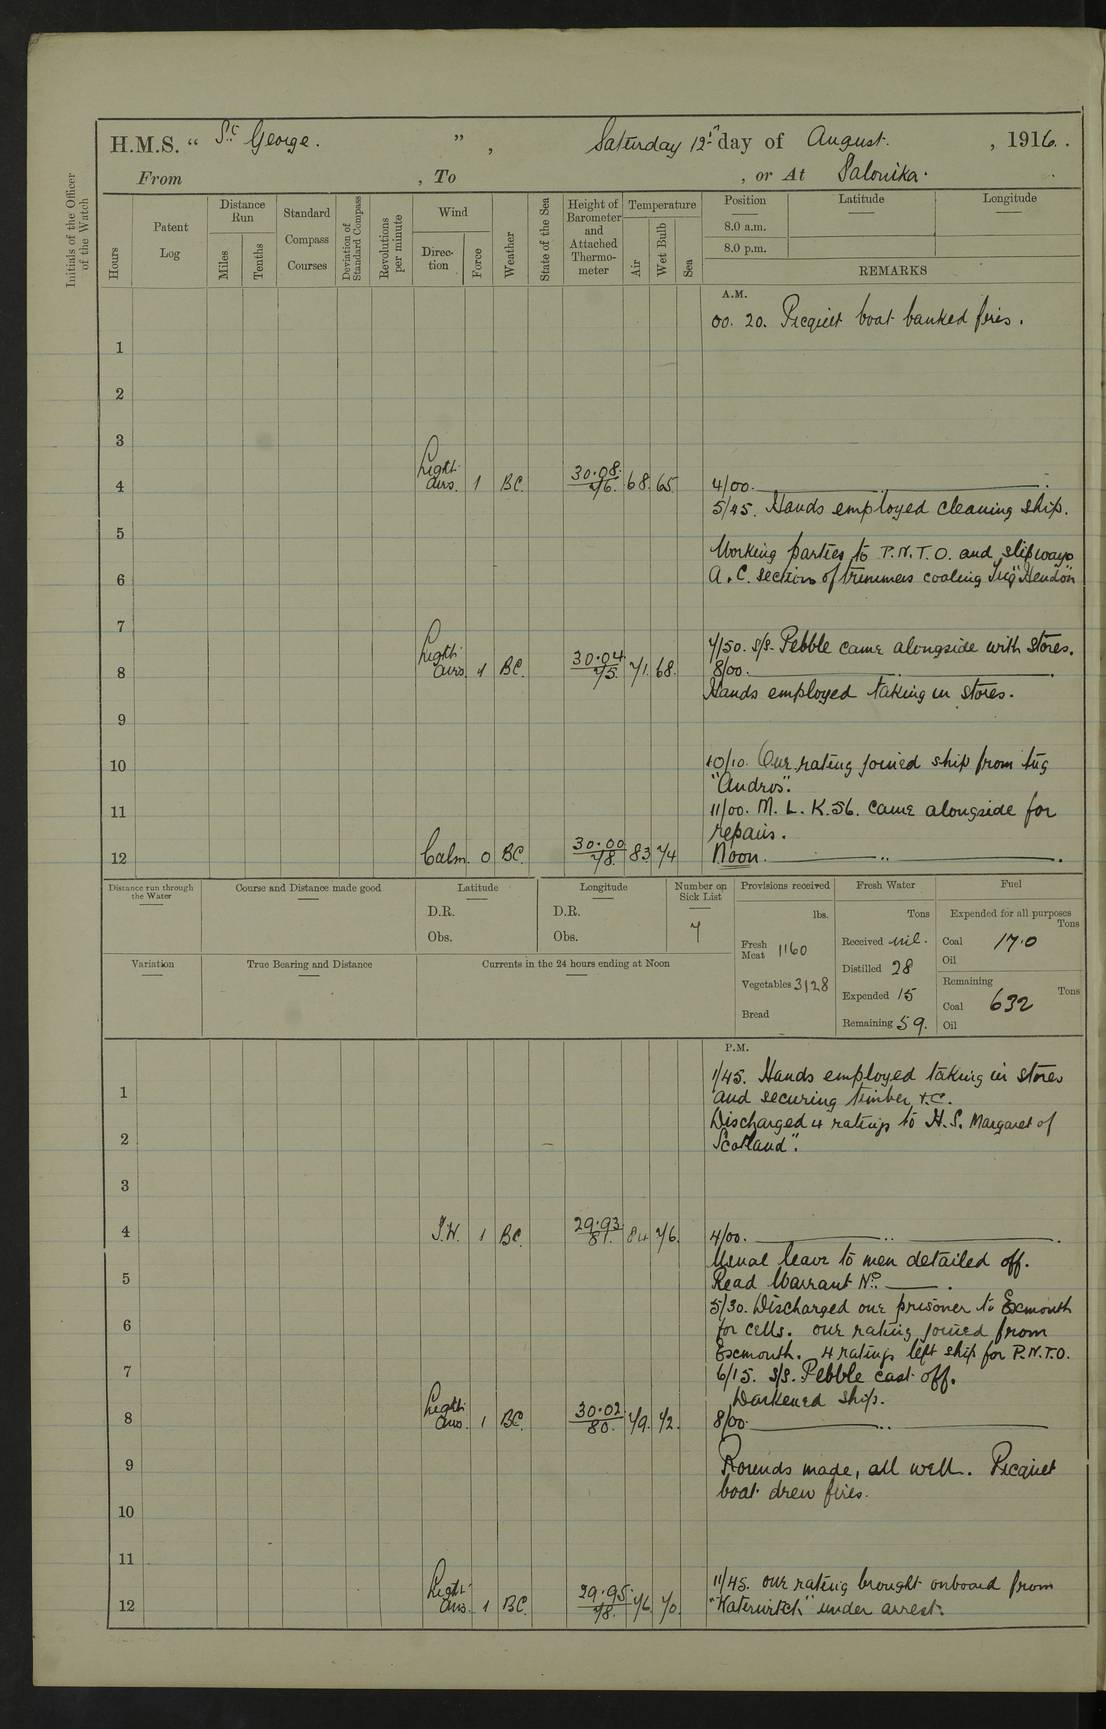 H.M.S. " St George. ", Saturday 12th day of August. , 1916.
From , To , or At Salonika.
Initials of the Officer of the Watch
Hours
Patent Log
Distance Run
Miles
Tenths
Standard Compass Courses
Deviation of Standard Compass
Revolutions per minute
Wind
Direction
Force
Weather
State of the Sea
Height of Barometer and Attached Thermometer
Temperature
Air
Wet Bulb
Sea
Position
8.0 a.m.
8.0 p.m.
Latitude
Longitude
REMARKS
A.M.
00.20. Picquet boat banked fires.
1
2
3
4 Light airs. 1 BC. 30.08. 76. 68. 65. 4/00.
5/45. Hands employed cleaning ship.
5
Working parties to P.N.T.O. and slipways
6 A.C. section of trimmers coaling Tug "Hendon"
7
7/50. S/S. Pebble came alongside with stores.
8 Light airs. 1 BC. 30.04 75. 71. 68. 8/00.
Hands employed taking in stores.
9
10 10/10. One rating joined ship from tug
"Andros".
11 11/00. M.L.K.56. came alongside for
repairs.
12 Calm. 0 BC. 30.00 78. 83 74 Noon.
Distance run through the Water
Course and Distance made good
Latitude
D.R.
Obs.
Longitude
D.R.
Obs.
Number on Sick List
7
Provisions received
lbs.
Fresh Meat 1160
Vegetables 3128
Bread
Fresh Water
Tons
Received nil.
Distilled 28
Expended 15
Remaining 59.
Fuel
Expended for all purposes
Tons
Coal 17.0
Oil
Remaining
Tons
Coal 632
Oil
Variation
True Bearing and Distance
Currents in the 24 hours ending at Noon
P.M.
1/45. Hands employed taking in stores
1 and securing timber &.C.
Discharged 4 ratings to H.S. Margaret of
2 Scotland".
3
4 1 BC. 29.93. 81. 84 76. 4/00.
Usual leave to men detailed off.
5 Read Warrant No.
5/30. Discharged one prisoner to Exmouth
6 for cells. one rating joined from
Exmouth. 4 ratings left ship for P.N.T.O.
7 6/15. S/S. Pebble cast off.
Darkened ship.
8 Light airs. 1 BC. 30.02. 80. 79. 72. 8/00.
9 Rounds made, all well. Picquet
boat drew fires.
10
11
11/45. one rating brought onboard from
12 Light airs. 1 BC. 29.95. 78. 76. 70. "Waterwitch" under arrest.